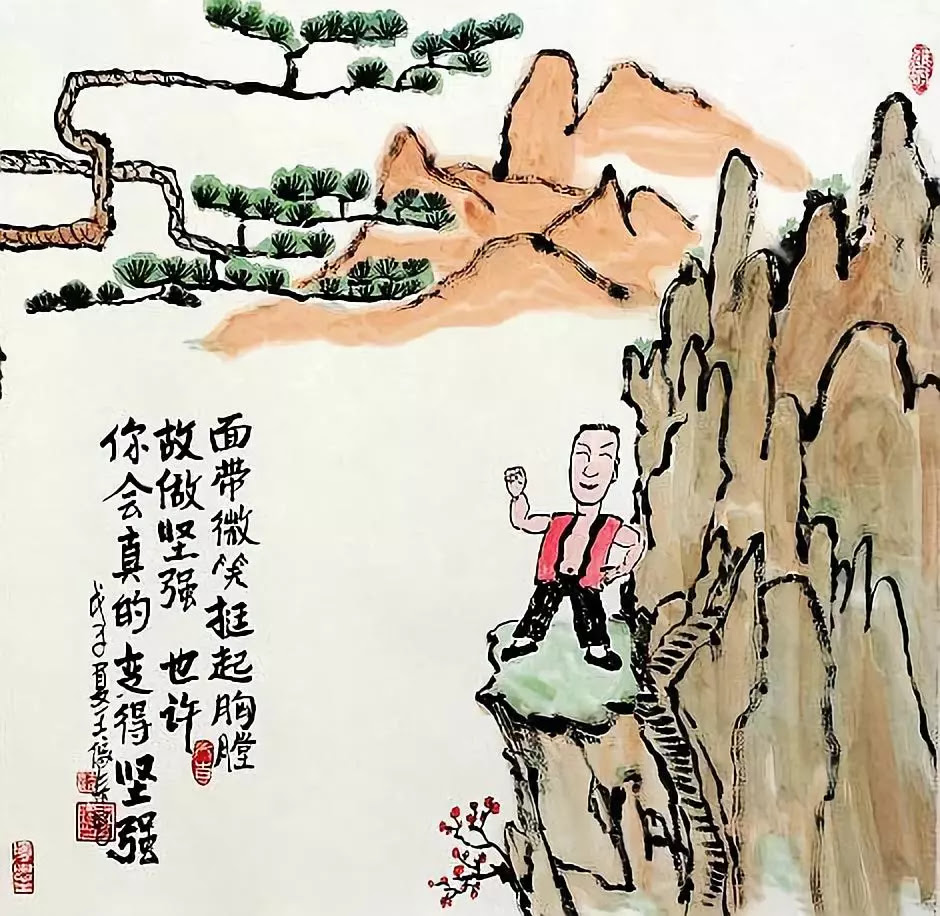 面带微笑挺起胸膛
故做坚强 也许
你会真的变得坚强
戊子夏王